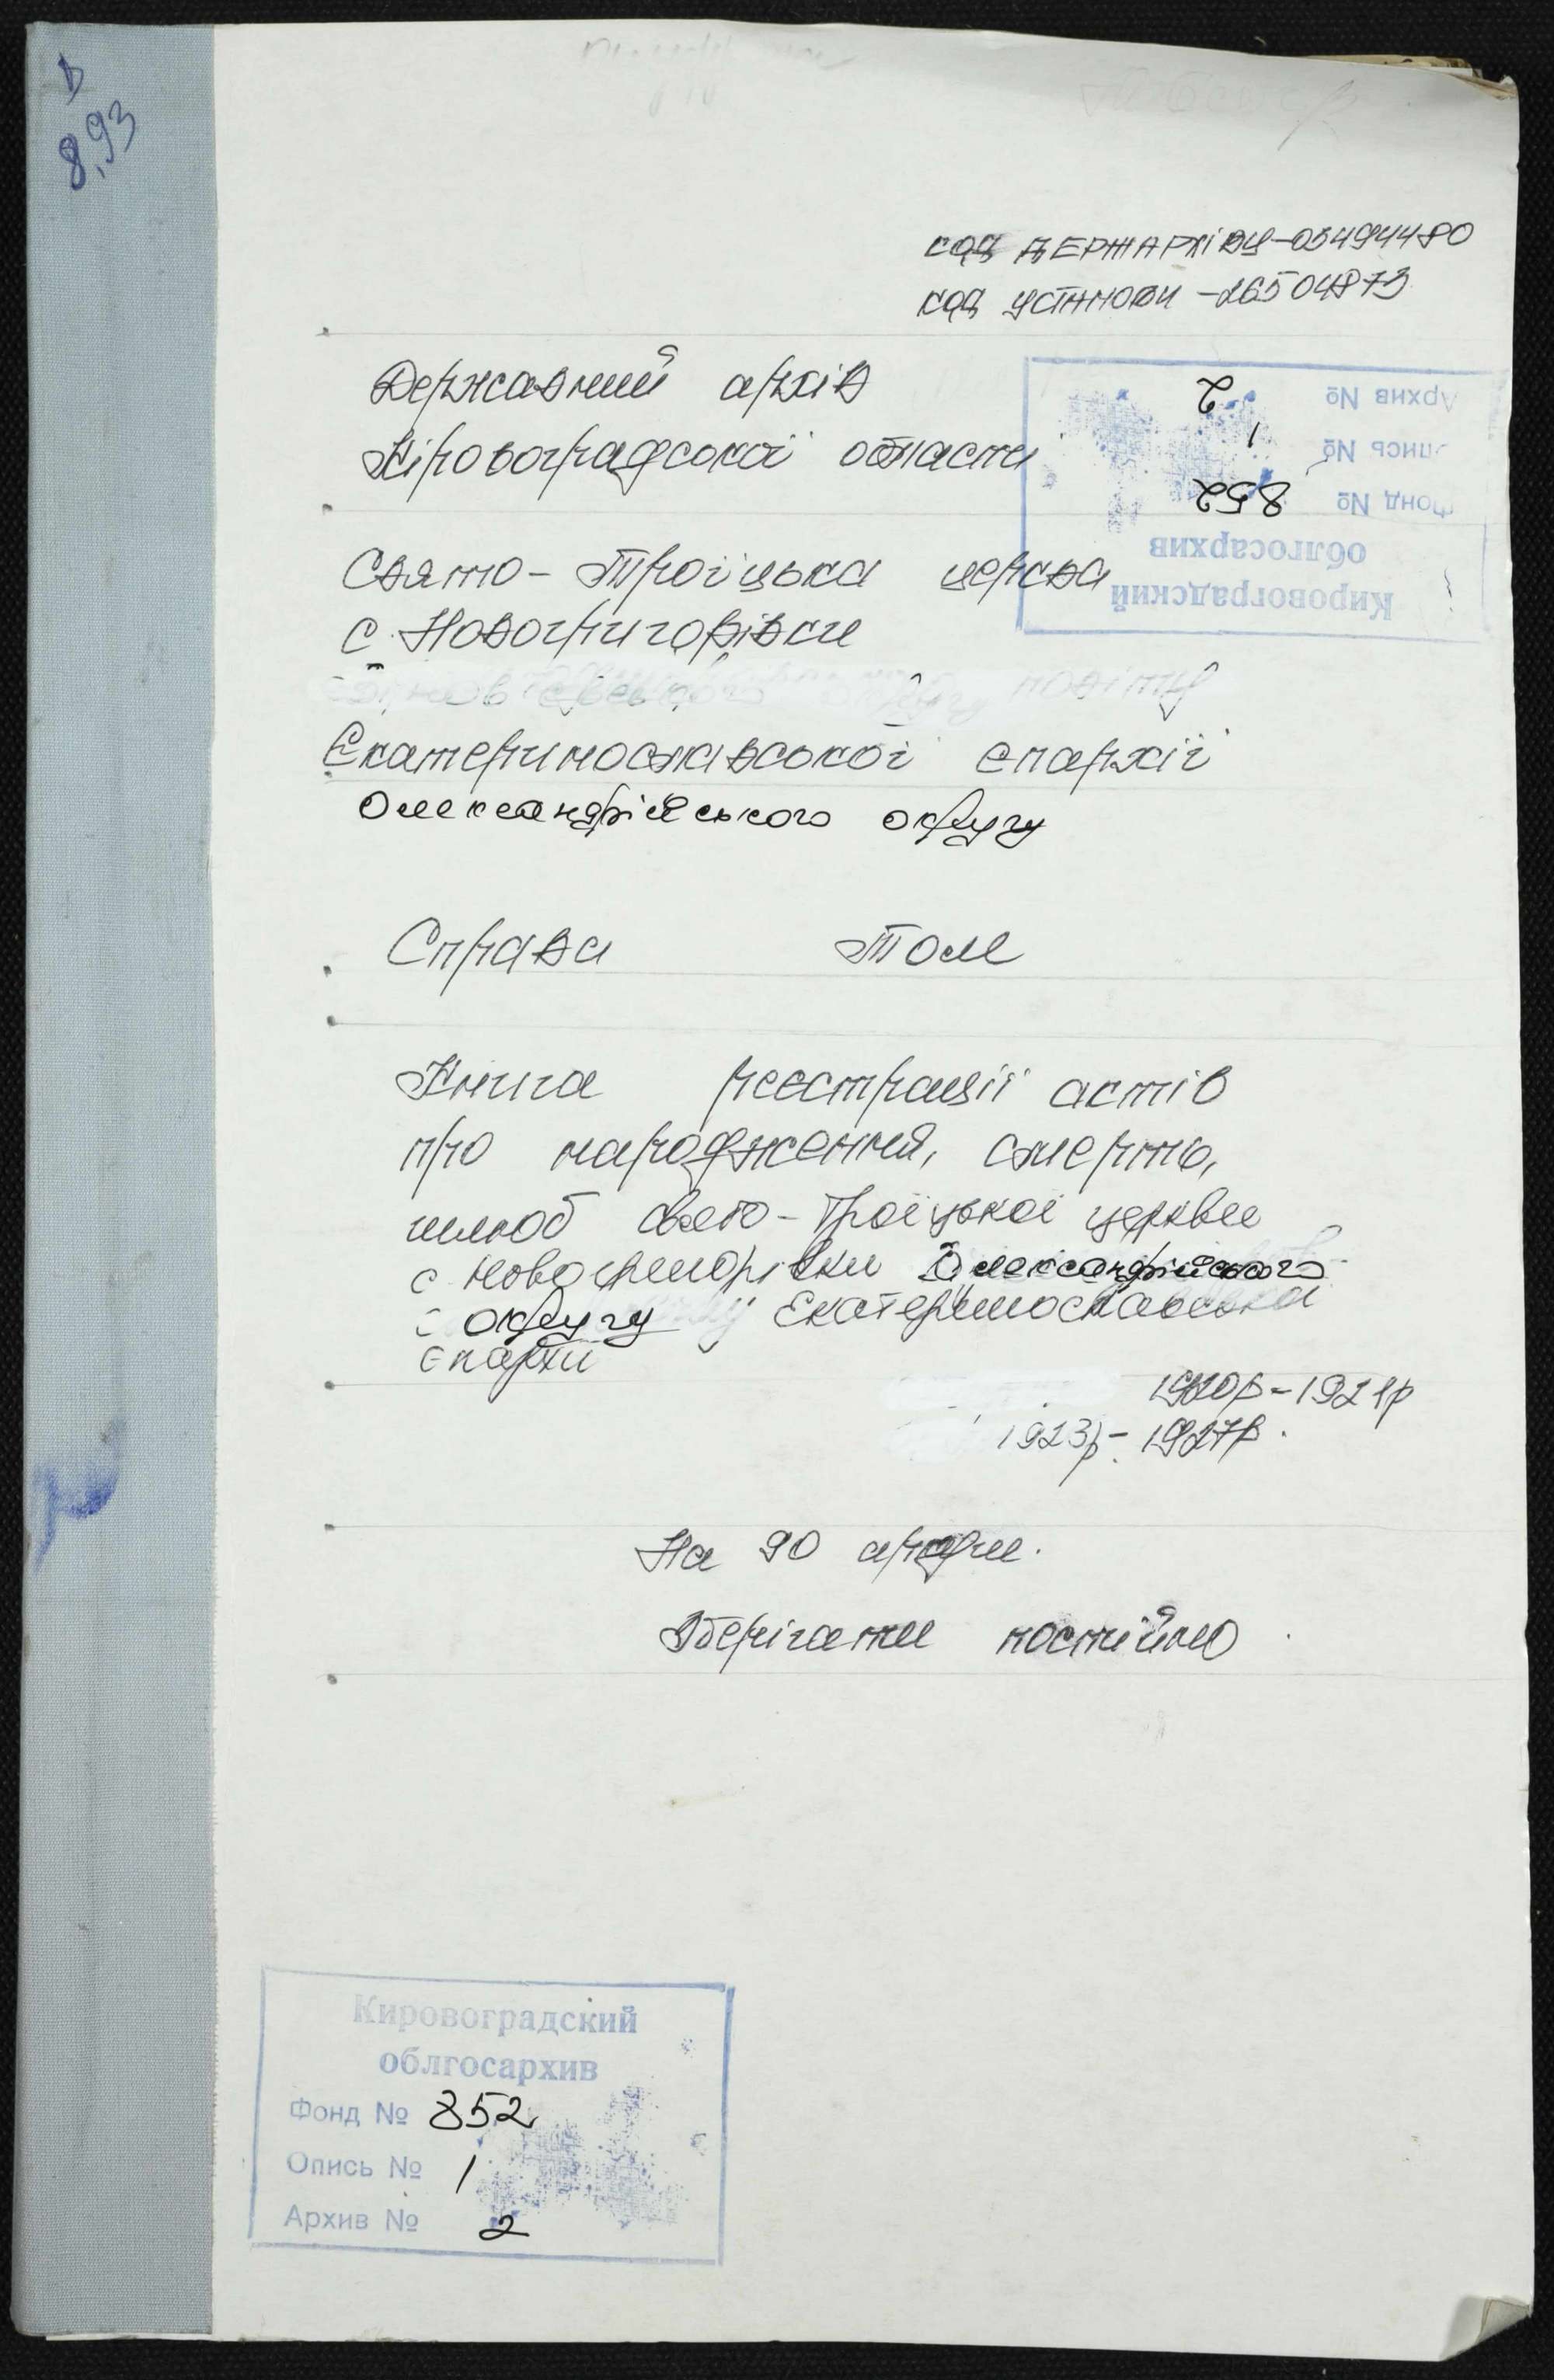 8,93
код ДЕРЖАРХІВУ-03494480
код УСТАНОВИ -26504873
Державний архів
Кіровоградської області
Архив № 2
Опись № 1
Фонд № 852
облгосархив
Кировоградский
Свято-Троїцька церква
с. Новогригорівки
повіту
Екатеринославської єпархії
Олександрійського округу
Справа Том
Книга реєстрації актів
про народження, смерть,
шлюб Свято-Троїцької церкви
с. Новогригорівки Олександрійського
округу Екатеринославська
єпархії
1920р-1921р
1923р-1927р.
На 90 аркуш.
Зберігати постійно
Кировоградский
облгосархив
Фонд № 852
Опись № 1
Архив № 2